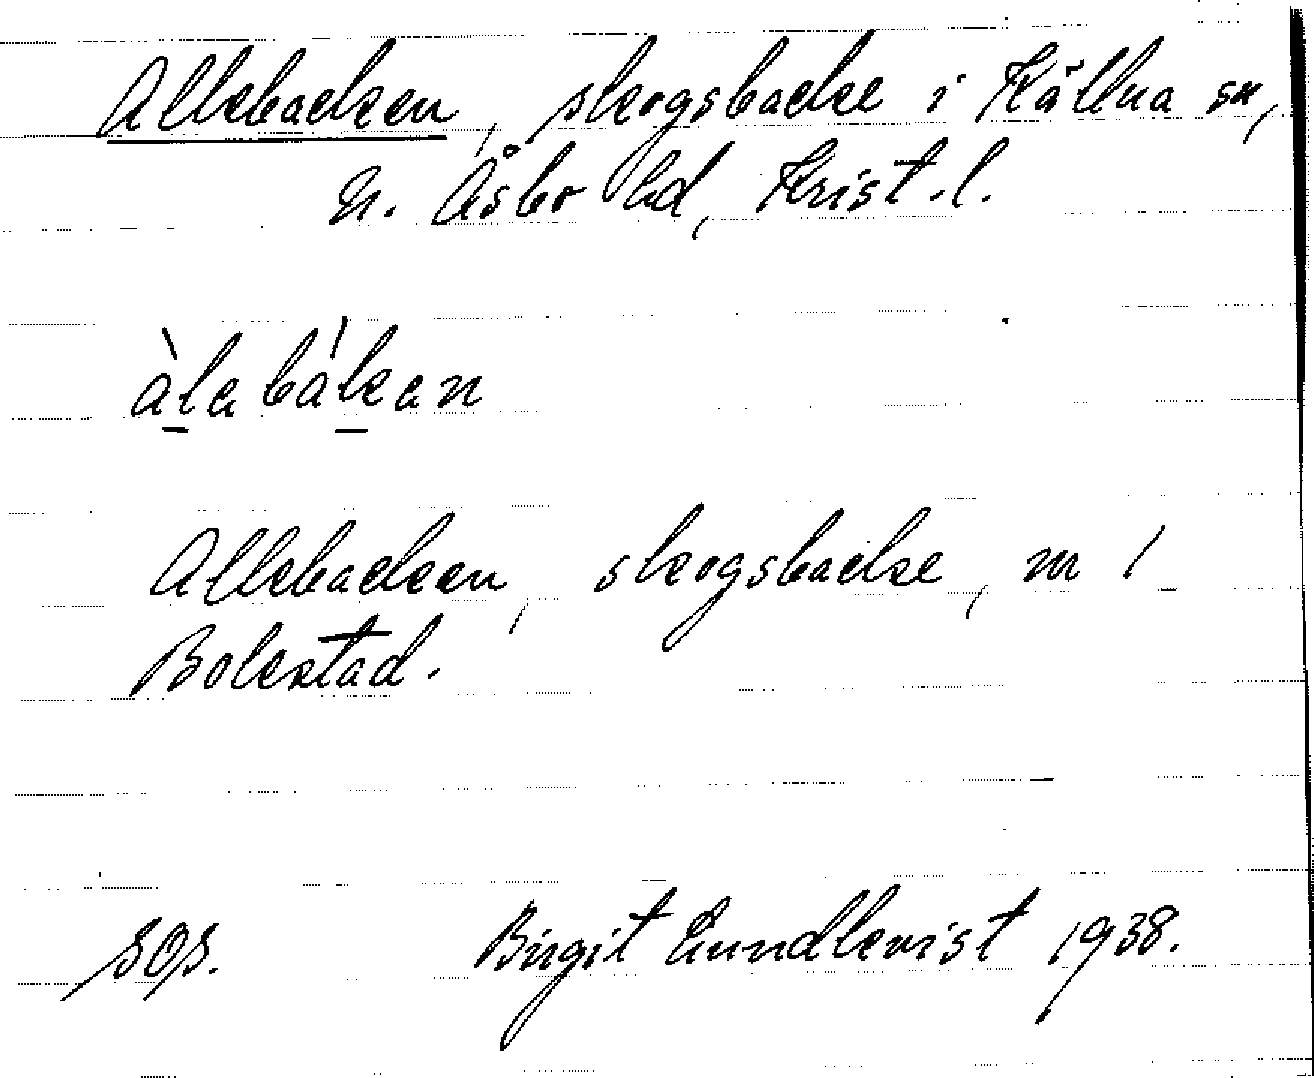 Allebacken, skogsbacke i Källna sn,
N. Åsbo hd, Krist. l.
àlabákan
Allebacken, skogsbacke, m 1
Bolestad.
SOS. Birgit Lundkvist 1938.